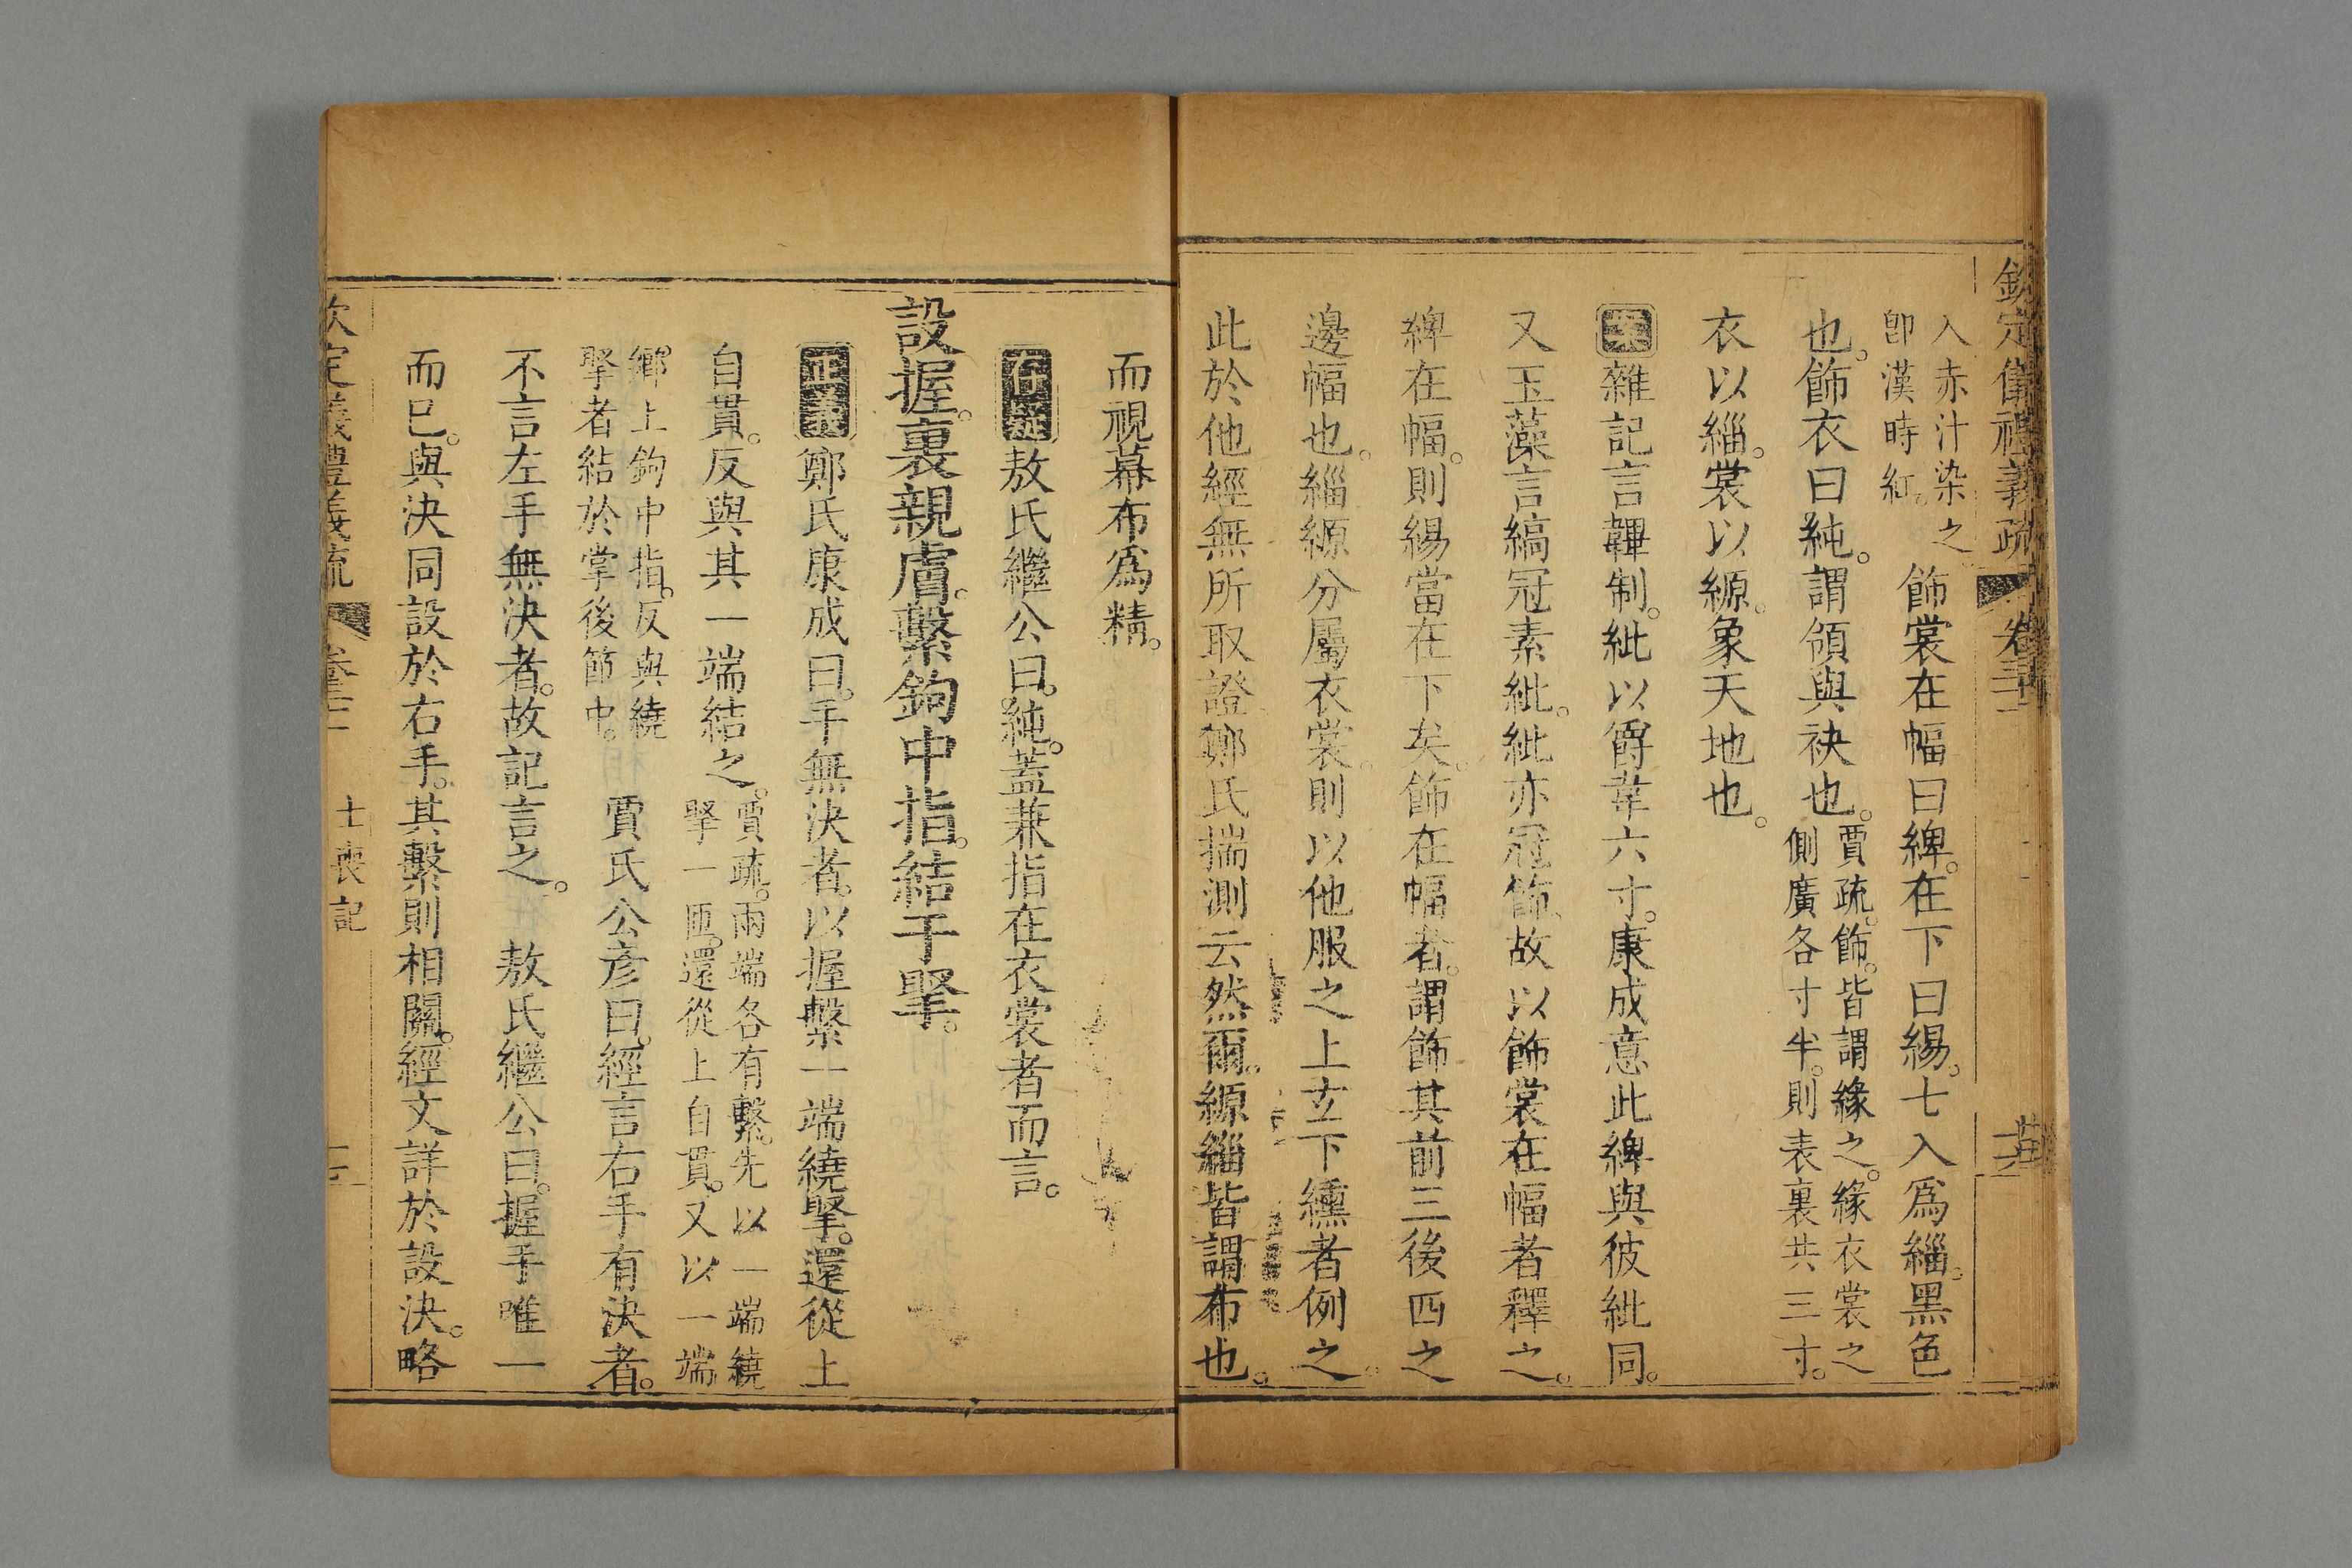 欽定儀禮義疏 卷三十一
入赤汁染之
卽漢時紅。
飾裳在幅曰綼。在下曰緆。七入爲緇。黑色
也。飾衣曰純。謂領與袂也。
賈疏。飾。皆謂緣之。緣衣裳之
側廣各寸半。則表裏共三寸。
衣以緇。裳以縓。象天地也。
案雜記言韠制。紕以爵韋六寸。康成意此綼與彼紕同。
又玉藻言縞冠素紕。紕亦冠飾。故以飾裳在幅者釋之。
綼在幅。則緆當在下矣。飾在幅者。謂飾其前三後四之
邊幅也。緇縓分屬衣裳。則以他服之上玄下纁者例之。
此於他經無所取證。鄭氏揣測云然爾。縓緇皆謂布也。
而視幕布爲精。
存疑敖氏繼公曰。純。蓋兼指在衣裳者而言。
設握。裏親膚。繫鉤中指。結于掔。
正義鄭氏康成曰。手無決者。以握繫一端繞掔。還從上
自貫。反與其一端結之。
賈疏。兩端各有繫。先以一端繞
掔一匝。還從上自貫。又以一端
鄉上鉤中指。反與繞
掔者結於掌後節中。
賈氏公彥曰。經言右手有決者。
不言左手無決者。故記言之。 敖氏繼公曰。握手唯一
而已。與決同設於右手。其繫則相關。經文詳於設決。略
欽定義禮義疏 卷三十一 士喪記